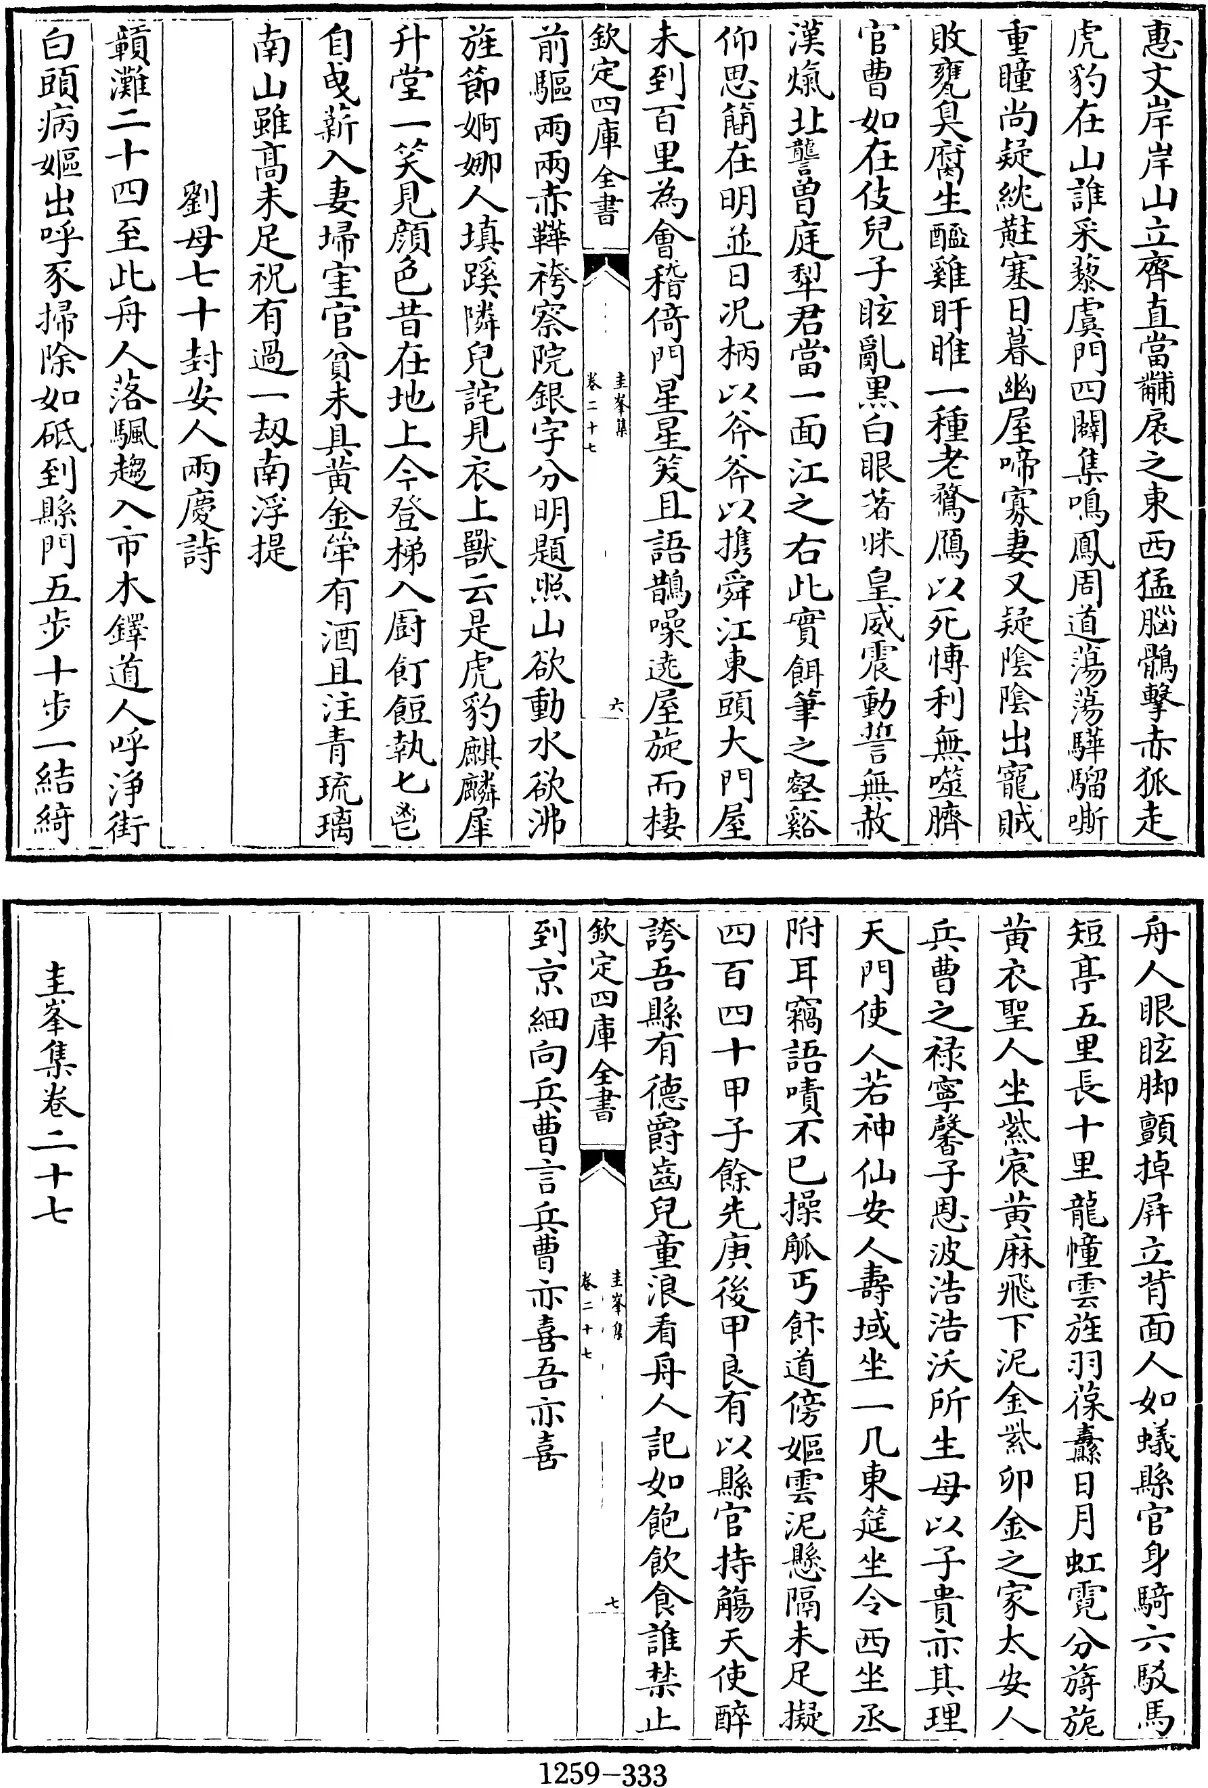 惠文岸岸山立齊直當黼扆之東西猛腦鶻擊赤狐走
虎豹在山誰采藜虞門四闢集鳴鳳周道蕩蕩驊騮嘶
重瞳尚疑絖黈塞日暮幽屋啼寡妻又疑陰陰出寵賊
敗甕臭腐生醯雞盱睢一種老鶩鴈以死博利無噬臍
官曹如在伎兒子眩亂黒白眼著眯皇威震動誓無赦
漢㷼北讋曽庭犁君當一面江之右此實餌筆之壑谿
仰思簡在明並日况柄以斧斧以携舜江東頭大門屋
未到百里為會稽倚門星星笑且語鵲噪遶屋旋而棲
欽定四庫全書
圭峯集
卷二十七
六
前驅兩兩赤鞾袴察院銀字分明題照山欲動水欲沸
旌節婀娜人填蹊隣兒詫見衣上獸云是虎豹麒麟犀
升堂一笑見顔色昔在地上今登梯入厨飣餖執匕鬯
自曵薪入妻埽室官貧未具黄金斝有酒且注青琉璃
南山雖髙未足祝有過一刼南浮提
劉母七十封安人兩慶詩
贛灘二十四至此舟人落颿趨入市木鐸道人呼浄街
白頭病嫗出呼豕掃除如砥到縣門五步十步一結綺
舟人眼眩脚顫掉屏立背面人如蟻縣官身騎六駮馬
短亭五里長十里龍幢雲旌羽葆纛日月虹霓分旖旎
黄衣聖人坐紫宸黄麻飛下泥金紫卯金之家太安人
兵曹之禄寧馨子恩波浩浩沃所生母以子貴亦其理
天門使人若神仙安人壽域坐一几東筵坐令西坐丞
附耳竊語嘖不已操觚丐飰道傍嫗雲泥懸隔未足擬
四百四十甲子餘先庚後甲良有以縣官持觴天使醉
誇吾縣有德爵齒兒童浪看舟人記如飽飲食誰禁止
欽定四庫全書
圭峯集
卷二十七
七
到京細向兵曹言兵曹亦喜吾亦喜
圭峯集卷二十七
1259-333